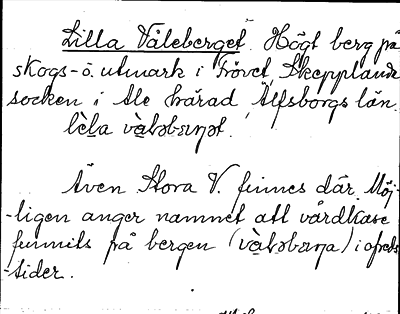 Lilla Våleberget. Högt berg på
skogs- o. utmark i Tövet, Skepplanda
socken i Ale härad Älfsborgs län.
Även Stora V. finnes där. Möj-
-ligen anger namnet att vårdkase
funnits på bergen i ofreds-
-tider.